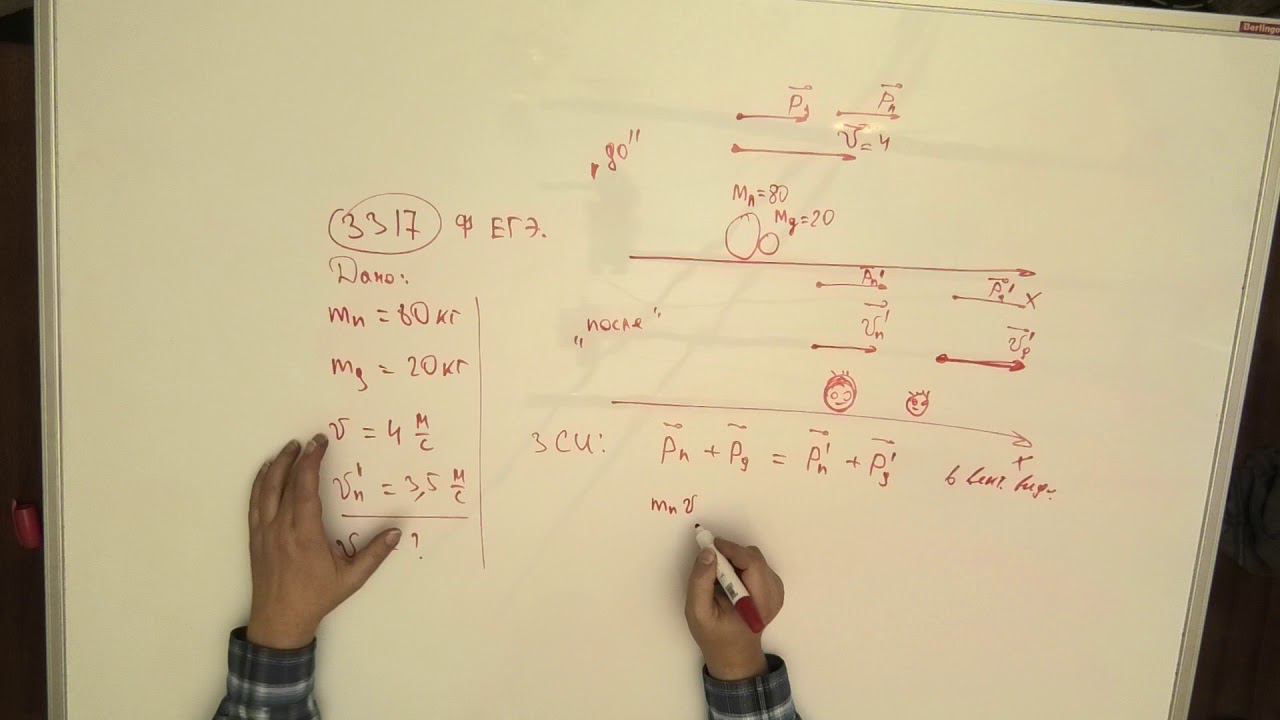 Berlingo
3317 Ф ЕГЭ.
Дано:
mп = 80 кг
mд = 20 кг
v = 4 м/с
vп' = 3,5 м/с
v = ?
„до"
Pд Pп
v = 4
Mп=80
Mд=20
X
„после"
Pп' Pд'
vп' vд'
x
ЗСИ: Pп + Pд = Pп' + Pд'
mп v